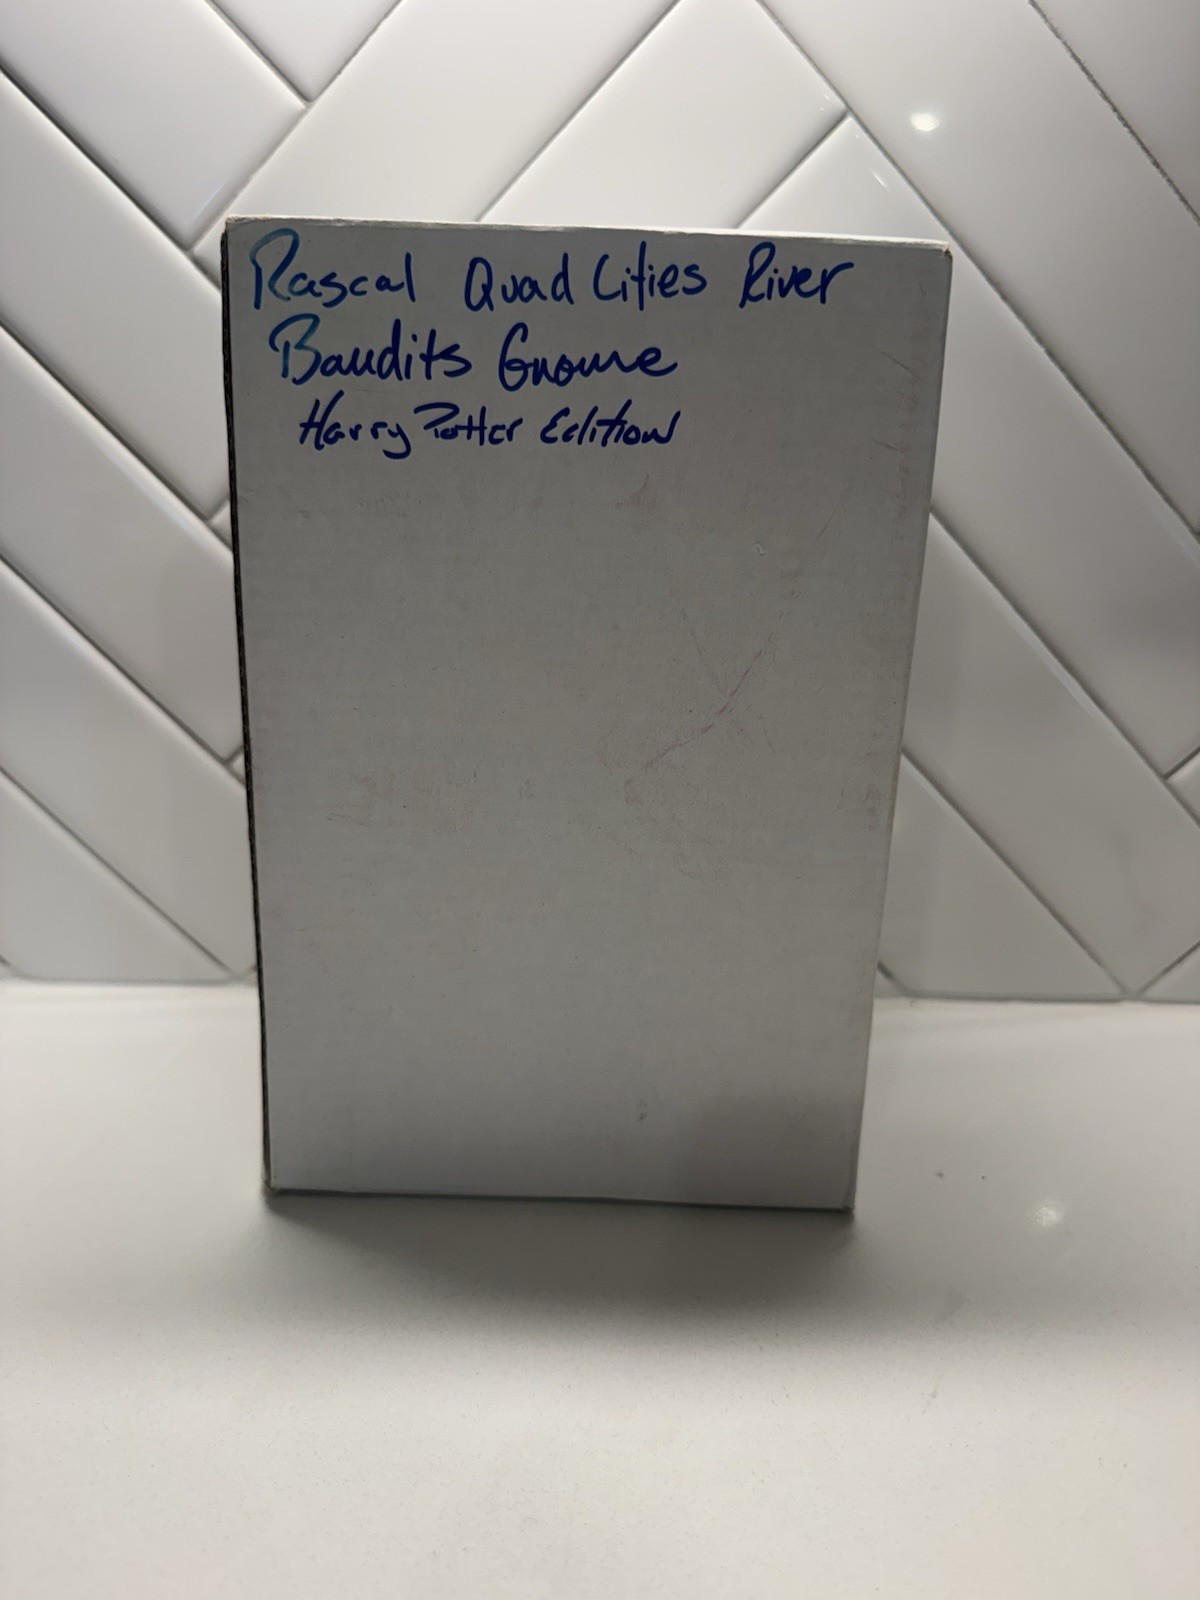 Rascal Quad Cities River
Bandits Gnome
Harry Potter Edition